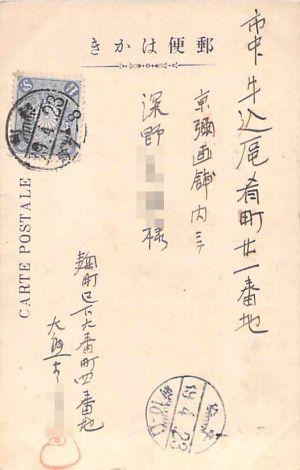 郵便はかき
CARTE POSTALE
市中牛込区肴町廿一番地
京彌画舗内ニテ
深野
様
麹町区下六番町四番地
39
4
23